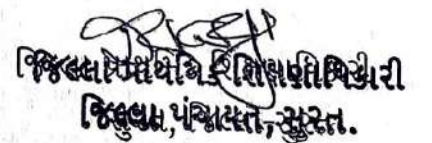 જિલ્લા પ્રાથમિક શિક્ષણાધિકારી
જિલ્લા પંચાયત, સુરત.